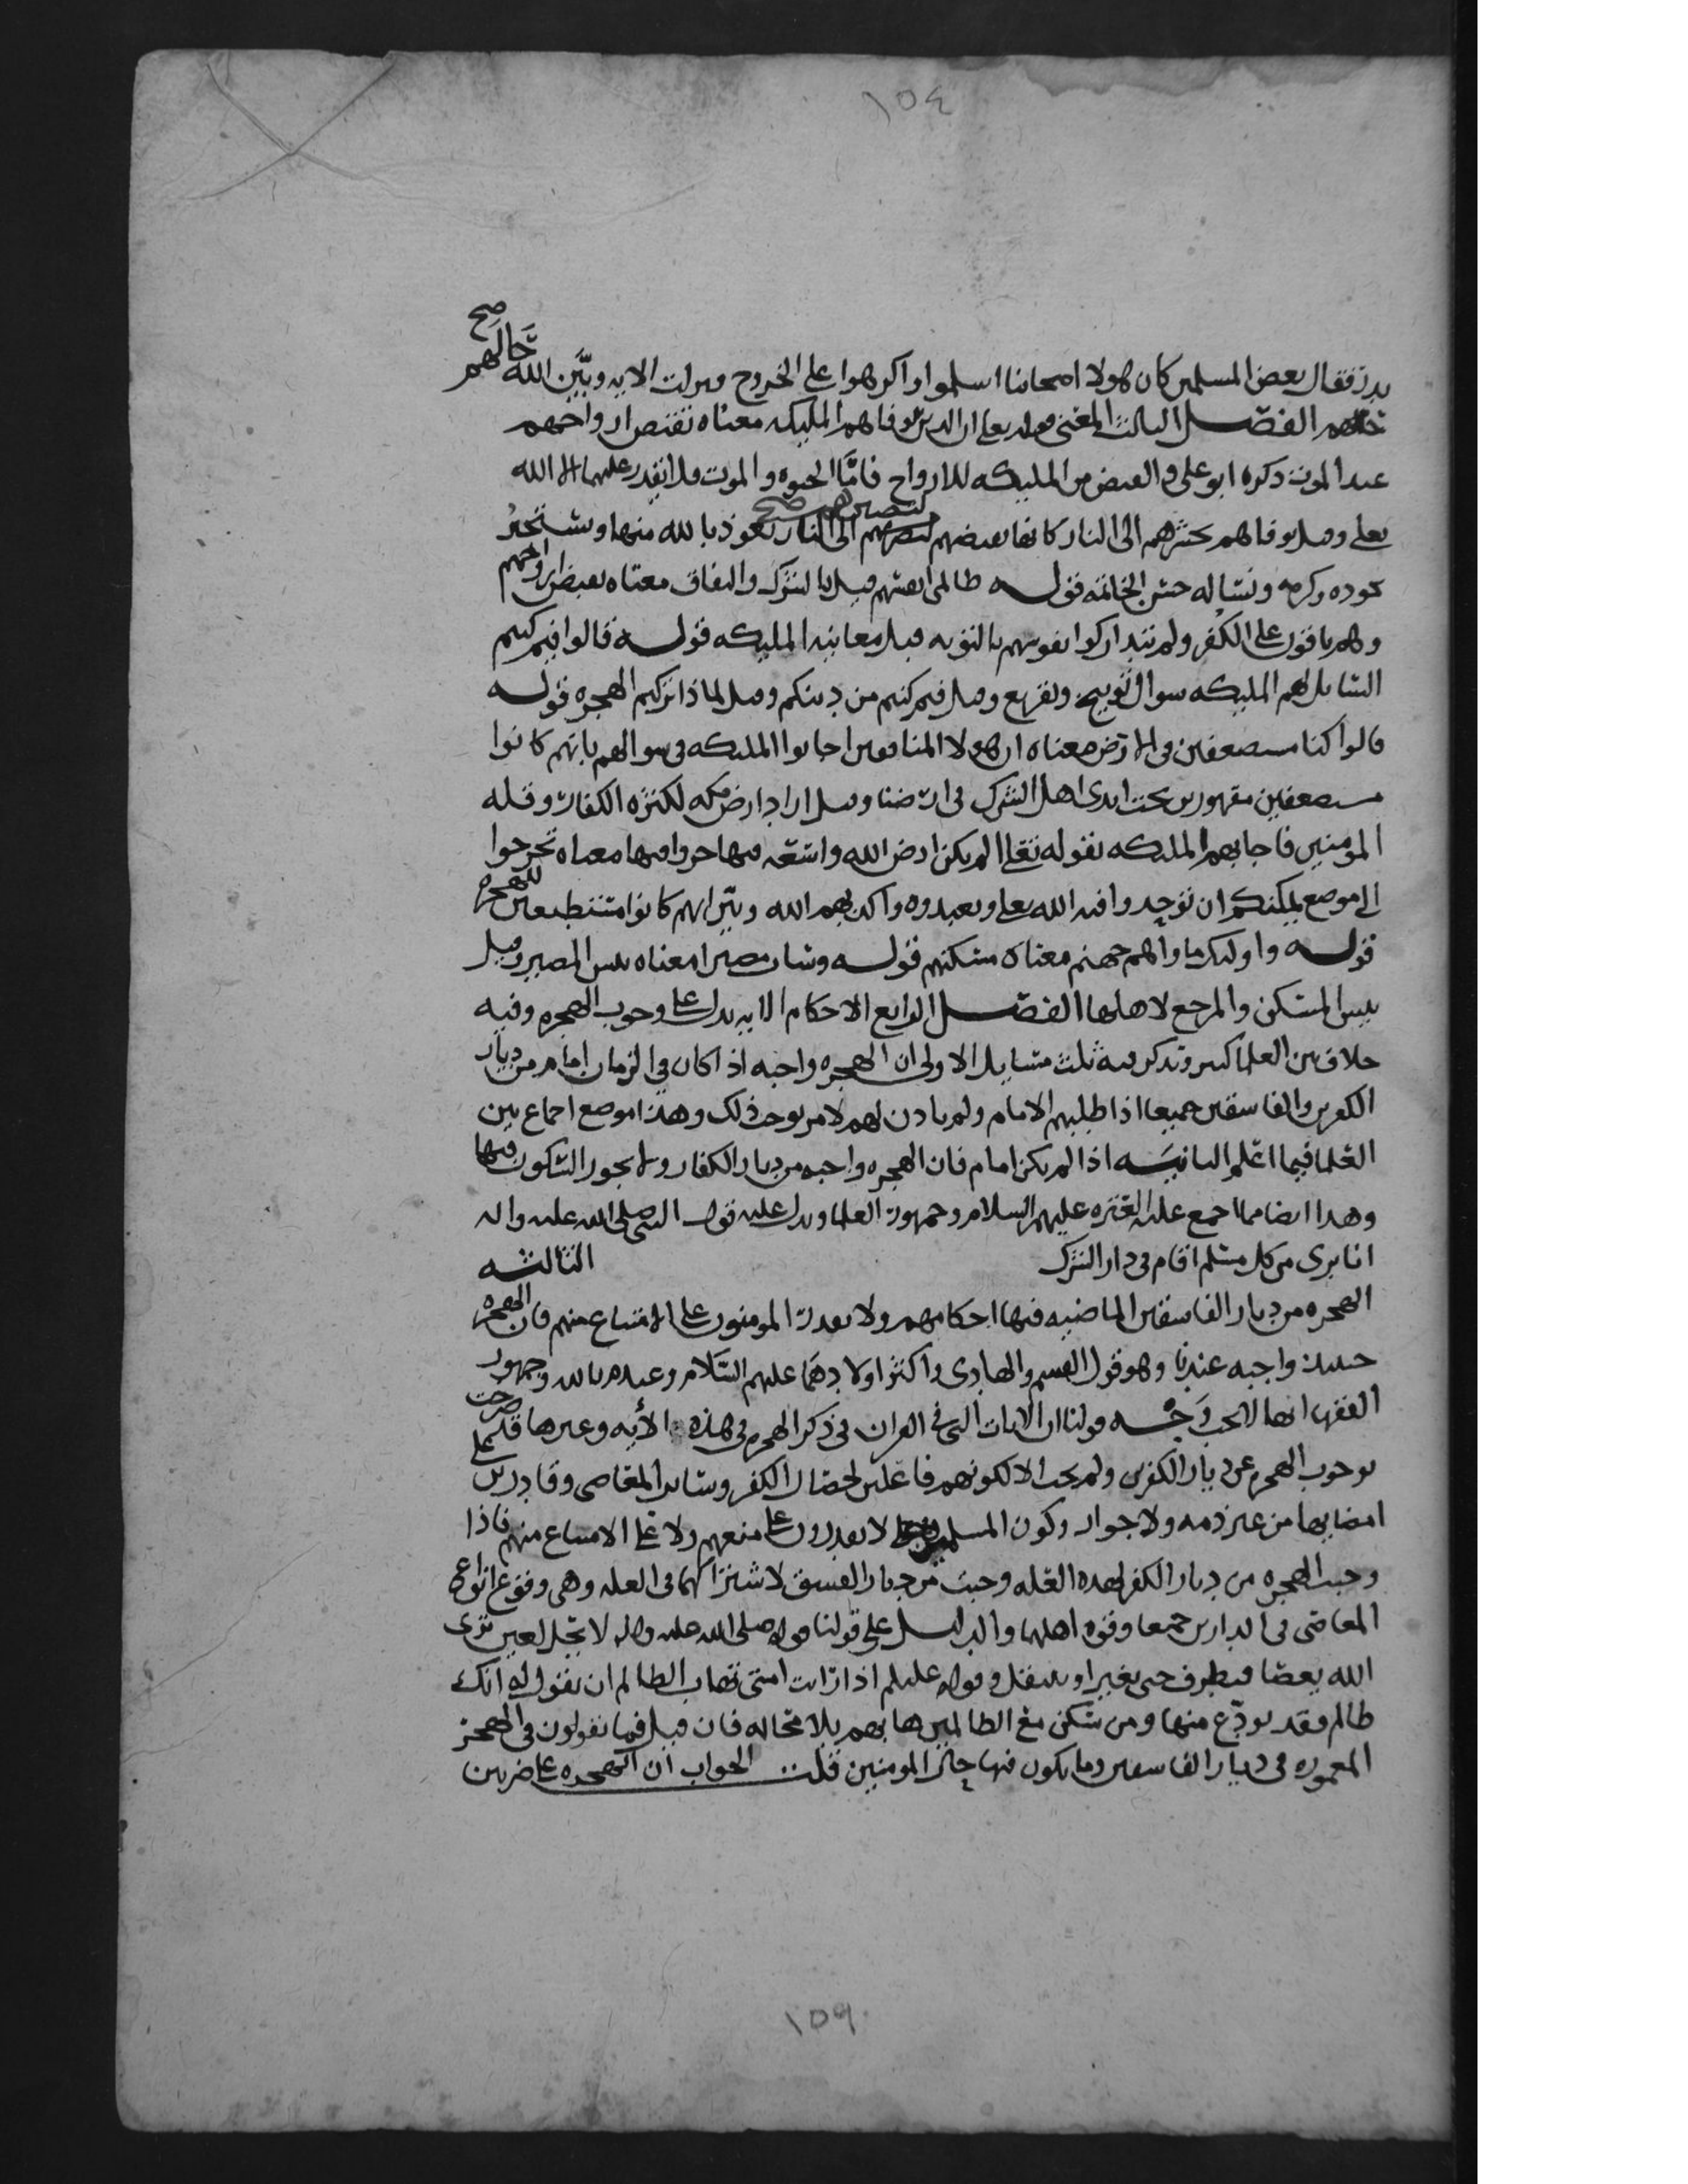 ١٥٤
صح
حَالَهم
بدر فقال بعض المسلمين كان هولا اصحابنا اسلموا واكرهوا على الخروج ونزلت الايه وبَيَّن الله
الفصـــل الثالث المعنى قوله تعلى ان الدين توفاهم المليكه معناه تقبض ارواحهم
عند الموت ذكره ابو علي والقبض من المليكه للارواح فامَّا الحيوه والموت فلا يقدر عليهما الا الله
لتصيرهم صح
تعلى وقيل توفاهم بحشرهم الى النار كانها تقبضهم الى النار نعوذ بالله منها ونستجير
بجوده وكرمه ونساله حسن الخاتمه قولـــه ظالمي انفسهم قيل بالشرك والنفاق معناه تقبض ارواحهم
وهم باقون على الكفر ولم يتداركوا نفوسهم بالتوبه قبل معاينه المليكه قولـــه قالوا فيم كنتم
السايل لهم المليكه سوال توبيخ وتقريع وقيل فيم كنتم من دينكم وقيل لماذا تركتم الهجره قولـــه
قالوا كنا مستضعفين في الارض معناه ان هولا المنافقين اجابوا المليكه في سوالهم بانهم كانوا
مستضعفين مقهورين تحت ايدي اهل الشرك في ارضنا وقيل اراد ارض مكه لكثره الكفار وقله
المومنين فاجابهم المليكه بقوله تعلى الم يكن ارض الله واسعه فتهاجروا فيها معناه تخرجوا
الى موضع يمكنكم ان توحدوا فيه الله تعلى وتعبدوه واكذبهم الله وبيّن انهم كانوا مستطيعين للهجره
قولـــه واوليك ماواهم جهنم معناه مسكنهم قولـــه وسات مصيرا معناه بيس المصير وقيل
بيس المسكن والمرجع لاهلها الفصـــل الرابع الاحكام الايه تدل على وجوب الهجره وفيه
خلاف بين العلما كبير ونذكر فيه ثلث مسايل الاولى ان الهجره واجبه اذا كان في الزمان امام من ديار
الكفر والفاسقين جميعا اذا طلبهم الامام ولم ياذن لهم لامر يوجب ذلك وهذا موضع اجماع بين
العلما فيما اعلم الثانيـــه اذا لم يكن امام فان الهجره واجبه من ديار الكفار ولا يجوز السكون فيها
وهذا ايضا مما اجمع عليه العتره عليهم السلام وجمهور العلما ويدل عليه قول النبي صلى الله عليه واله
انا بري من كل مسلم اقام في دار الشرك الثالثه
الهجره من ديار الفاسقين الماضيه فيها احكامهم ولا يقدر المومنون على الامتناع منهم فان الهجره
حينيذ واجبه عندنا وهو قول القسم والهادي واكثر اولادهما عليهم السَّلام وعند وجمهور
الفقها انها لا تجب وَجـــه قولنا ان الايات التي في القران في ذكر الهجره في هذه الأيه وغيرها قد صرحت
بوجوب الهجره عن ديار الكفر ولم يجب الا لكونهم فاعلين لخصال الكفر وساير المعاصي وقادرين على
امضايها من غير ذمه ولا جوار وكون المسلمين لا يقدرون على منعهم ولا على الامتناع منهم فاذا
وجبت الهجره من ديار الكفر لهذه العله وجبت من ديار الفسق لاشتراكهما في العله وهي وقوع انواع
المعاصي في الدارين جميعا وقوه اهلها والدليـــل على قولنا قوله صلى الله عليه واله لا يحل لعين ترى
الله يعصا فتطرف حتى تغير او تنتقل وقوله عليلم اذا رات امتي تهاب الظالم ان تقول له انك
ظالم فقد تودّع منها ومن سكن مع الظالمين هابهم بلا محاله فان قيل فما تقولون في الهجر
المعموره في ديار الفاسقين وما يكون فيها جايز المومنين قلت .. الجواب ان الهجره على ضربين
١٥٩